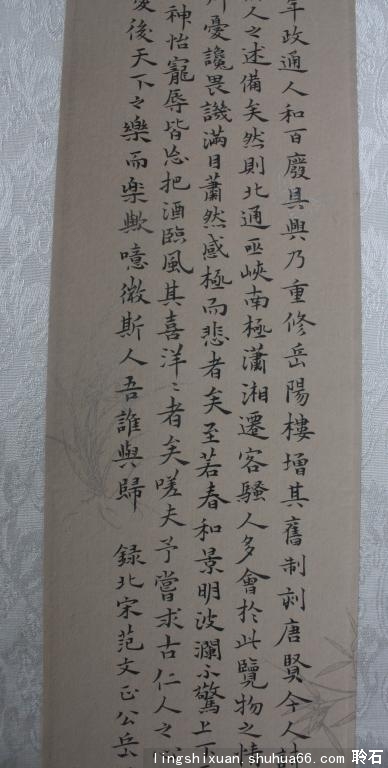 年政通人和百廢具興乃重修岳陽樓增其舊制刻唐賢今人詩
人之述備矣然則北通巫峽南極瀟湘遷客騷人多會於此覽物之情
憂讒畏譏滿目蕭然感極而悲者矣至若春和景明波瀾不驚上下
神怡寵辱皆忘把酒臨風其喜洋〻者矣嗟夫予嘗求古仁人之心
後天下之樂而樂歟噫微斯人吾誰與歸 錄北宋范文正公岳
lingshixuan.shuhua66.com 聆石